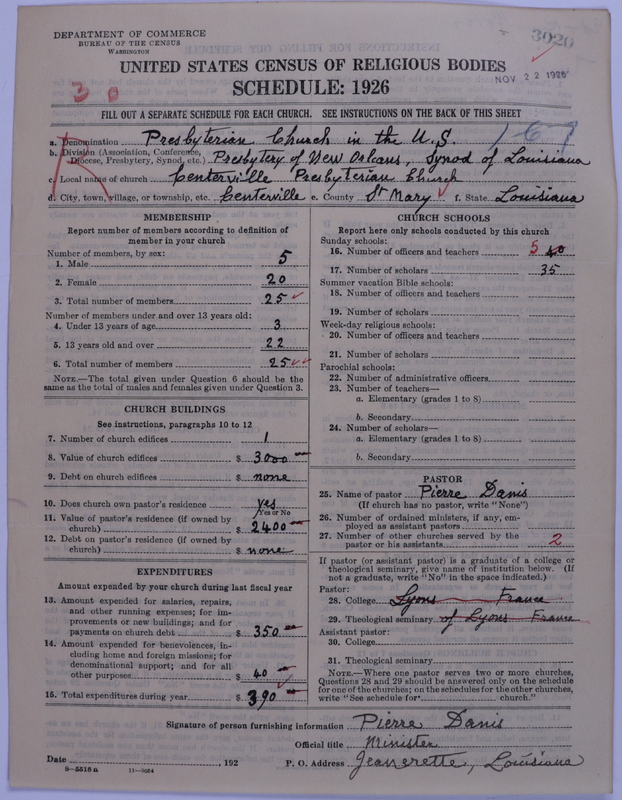 DEPARTMENT OF COMMERCE
BUREAU OF THE CENSUS
WASHINGTON
3020
UNITED STATES CENSUS OF RELIGIOUS BODIES
NOV 22 1926
SCHEDULE: 1926
30
FILL OUT A SEPARATE SCHEDULE FOR EACH CHURCH. SEE INSTRUCTIONS ON THE BACK OF THIS SHEET
a. Denomination Presbyterian Church in the U.S. 167
b. Division (Association, Conference, Diocese, Presbytery, Synod, etc.) Presbytery of New Orleans, Synod of Louisiana
c. Local name of church Centerville Presbyterian Church
d. City, town, village, or township, etc. Centerville e. County St Mary f. State Louisiana
MEMBERSHIP
Report number of members according to definition of
member in your church
Number of members, by sex:
1. Male 5
2. Female 20
3. Total number of members 25
Number of members under and over 13 years old:
4. Under 13 years of age 3
5. 13 years old and over 22
6. Total number of members 25
NOTE.—The total given under Question 6 should be the
same as the total of males and females given under Question 3.
CHURCH BUILDINGS
See instructions, paragraphs 10 to 12
7. Number of church edifices 1
8. Value of church edifices $ 3000
9. Debt on church edifices $ none
10. Does church own pastor's residence yes
Yes or No
11. Value of pastor's residence (if owned by
church) $ 2400
12. Debt on pastor's residence (if owned by
church) $ none
EXPENDITURES
Amount expended by your church during last fiscal year
13. Amount expended for salaries, repairs,
and other running expenses; for im-
provements or new buildings; and for
payments on church debt $ 350
14. Amount expended for benevolences, in-
cluding home and foreign missions; for
denominational support; and for all
other purposes $ 40
15. Total expenditures during year $ 390
CHURCH SCHOOLS
Report here only schools conducted by this church
Sunday schools:
16. Number of officers and teachers 5 40
17. Number of scholars 35
Summer vacation Bible schools:
18. Number of officers and teachers
19. Number of scholars
Week-day religious schools:
20. Number of officers and teachers
21. Number of scholars
Parochial schools:
22. Number of administrative officers
23. Number of teachers—
a. Elementary (grades 1 to 8)
b. Secondary
24. Number of scholars—
a. Elementary (grades 1 to 8)
b. Secondary
PASTOR
25. Name of pastor Pierre Danis
(If church has no pastor, write "None")
26. Number of ordained ministers, if any, em-
ployed as assistant pastors
27. Number of other churches served by the
pastor or his assistants 2
If pastor (or assistant pastor) is a graduate of a college or
theological seminary, give name of institution below. (If
not a graduate, write "No" in the space indicated.)
Pastor:
28. College Lyons France
29. Theological seminary of Lyons France
Assistant pastor:
30. College
31. Theological seminary
NOTE.—Where one pastor serves two or more churches,
Questions 28 and 29 should be answered only on the schedule
for one of the churches; on the schedules for the other churches,
write "See schedule for church."
Signature of person furnishing information Pierre Danis
Official title Minister
Date , 192 P. O. Address Jeanerette, Louisiana
8—5516a 11—9064